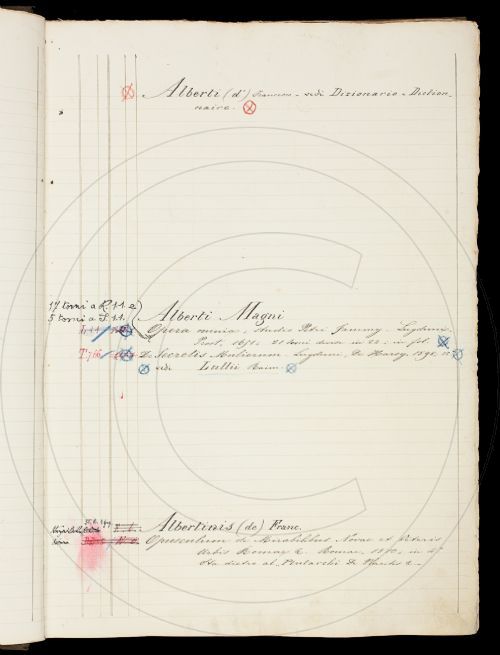 Alberti (d') Francesco - vedi Dizionario - Diction-
naire.
17 tomi a R.11.e
5 tomi a S.11.
Alberti Magni
Opera omnia, studio Petri Jammy - Lugduni,
Prost, 1651, 21 tomi divisi in 22; in fol.
T.7.66 De Secretis Mulierum - Lugduni, De Harsy, 1598, in
vedi Lullii Raim.
Albertinis (de) Franc.
Opusculum de Mirabilibus Novae et Veteris
Urbis Romae &. Romae, 1510, in 4°
Sta dietro al Plutarchi De